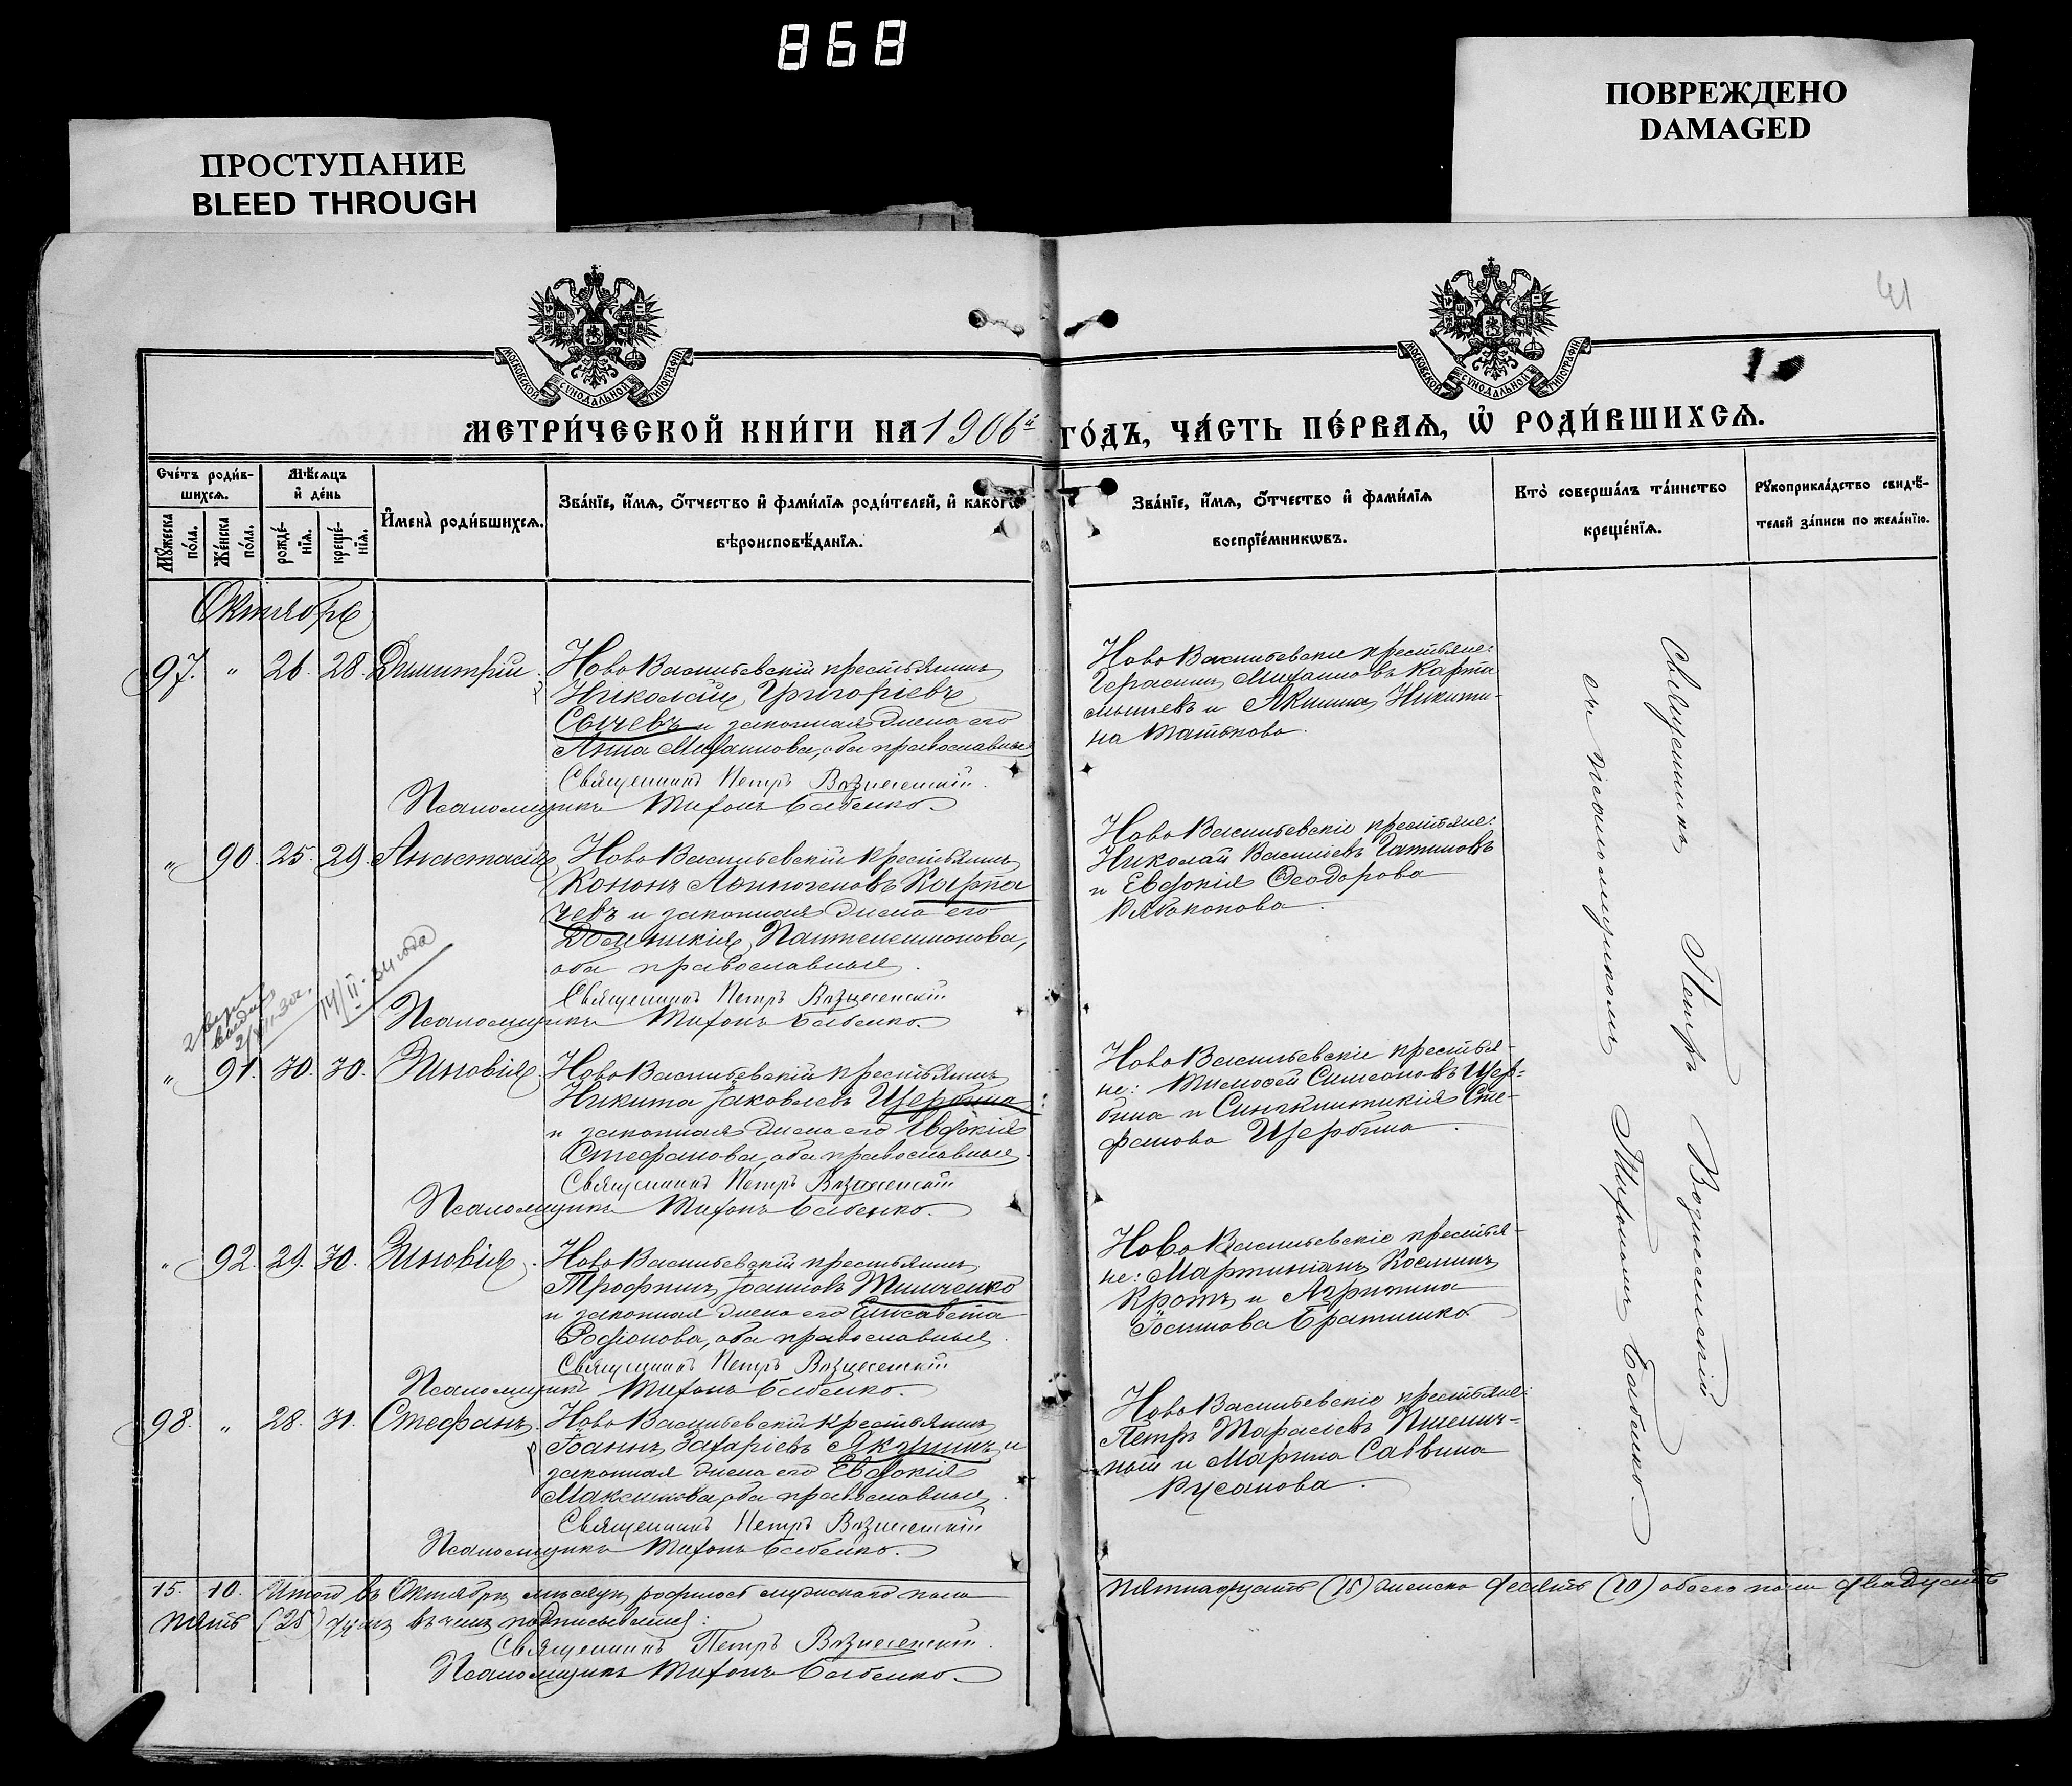 868
ПРОСТУПАНИЕ
BLEED THROUGH
ПОВРЕЖДЕНО
DAMAGED
41
МОСКОВСКОЙ СУНОДАЛЬНОЙ ТИПОГРАФІИ
МОСКОВСКОЙ СУНОДАЛЬНОЙ ТИПОГРАФІИ
МЕТРИ́ЧЕСКОЙ КНИ́ГИ НА 1906й ГО́ДЪ, ЧА́СТЬ ПЕ́РВАЯ, Ѡ РОДИ́ВШИХСЯ.
Сче́тъ роди́в-
шихся.
Мѣ́сяцъ
и де́нь
Мꙋ́жеска
по́ла.
Же́нска
по́ла.
рожде́-
нїя.
креще́-
нїя.
И҆мена̀ роди́вшихся.
Зва́нїе, и҆́мя, ѻ҆́тчество и҆ фами́лїя роди́телей, и҆ како́гѡ
вѣроисповѣ́данїя.
Зва́нїе, и҆́мя, ѻ҆́тчество и҆ фами́лїя
воспрїе́мникѡвъ.
Кто̀ соверша́лъ та́инство
креще́нїя.
Рꙋкоприкла́дство свидѣ́-
телей за́писи по жела́нїю.
Октябрь
97. " 26. 28. Димитрій. Ново Васильевскій крестьянинъ
Николай Григоріевъ
Сычевъ и законная жена его
Анна Михаилова, оба православные
Священникъ Петръ Вознесенскій.
Псаломщикъ Тихонъ Бабенко.
Ново Васильевскіе крестьяне:
Герасимъ Михаиловъ Карта
мышевъ и Акилина Никити-
на
" 90. 25. 29. Анастасія Ново Васильевскій крестьянинъ
Кононъ Аѳиногеновъ Карпа
чевъ и законная жена его
Домникія Пантелеимонова,
оба православные.
Священникъ Петръ Вознесенскій
Псаломщикъ Тихонъ Бабенко.
Ново Васильевскіе крестьяне:
Николай Васильевъ
и Евдокія Ѳеодорова
Рябоконова.
14/II-34 года
" 91. 30. 30. Зиновія. Ново Васильевскій крестьянинъ
Никита Іаковлевъ Щербина
и законная жена его Евдокія
Стефанова, оба православные.
Священникъ Петръ Вознесенскій
Псаломщикъ Тихонъ Бабенко.
Ново Васильевскіе крестья-
не: Тимоѳей Симеоновъ Щер-
бина и Синклитикія Сте-
фанова Щербина.
" 92. 29. 30. Зиновія. Ново Васильевскій крестьянинъ
Трофимъ Іоанновъ Тимченко
и законная жена его Елисавета
Родіонова, оба православные.
Священникъ Петръ Вознесенскій
Псаломщикъ Тихонъ Бабенко.
Ново Васильевскіе крестья-
не: Мартиніанъ Косминъ
Кротъ и Агрипина
Іоаннова Братишко
98. " 28. 31. Стефанъ. Ново Васильевскій крестьянинъ
Іоаннъ Захаріевъ Якушинъ и
законная жена его Евдокія
Максимова, оба православные.
Священникъ Петръ Вознесенскій
Псаломщикъ Тихонъ Бабенко.
Ново Васильевскіе крестьяне:
Петръ Тарасіевъ Пшенич-
ный и Марина Саввина
Русанова.
Священникъ Петръ Вознесенскій
съ псаломщикомъ Тихономъ Бабенко
15. 10. Итого въ Октябрѣ мѣсяцѣ родилось мужскаго пола пятнадцать (15) женска десять (10) обоего пола двадцать
пять (25) душъ въ чемъ подписываемся:
Священникъ Петръ Вознесенскій.
Псаломщикъ Тихонъ Бабенко.